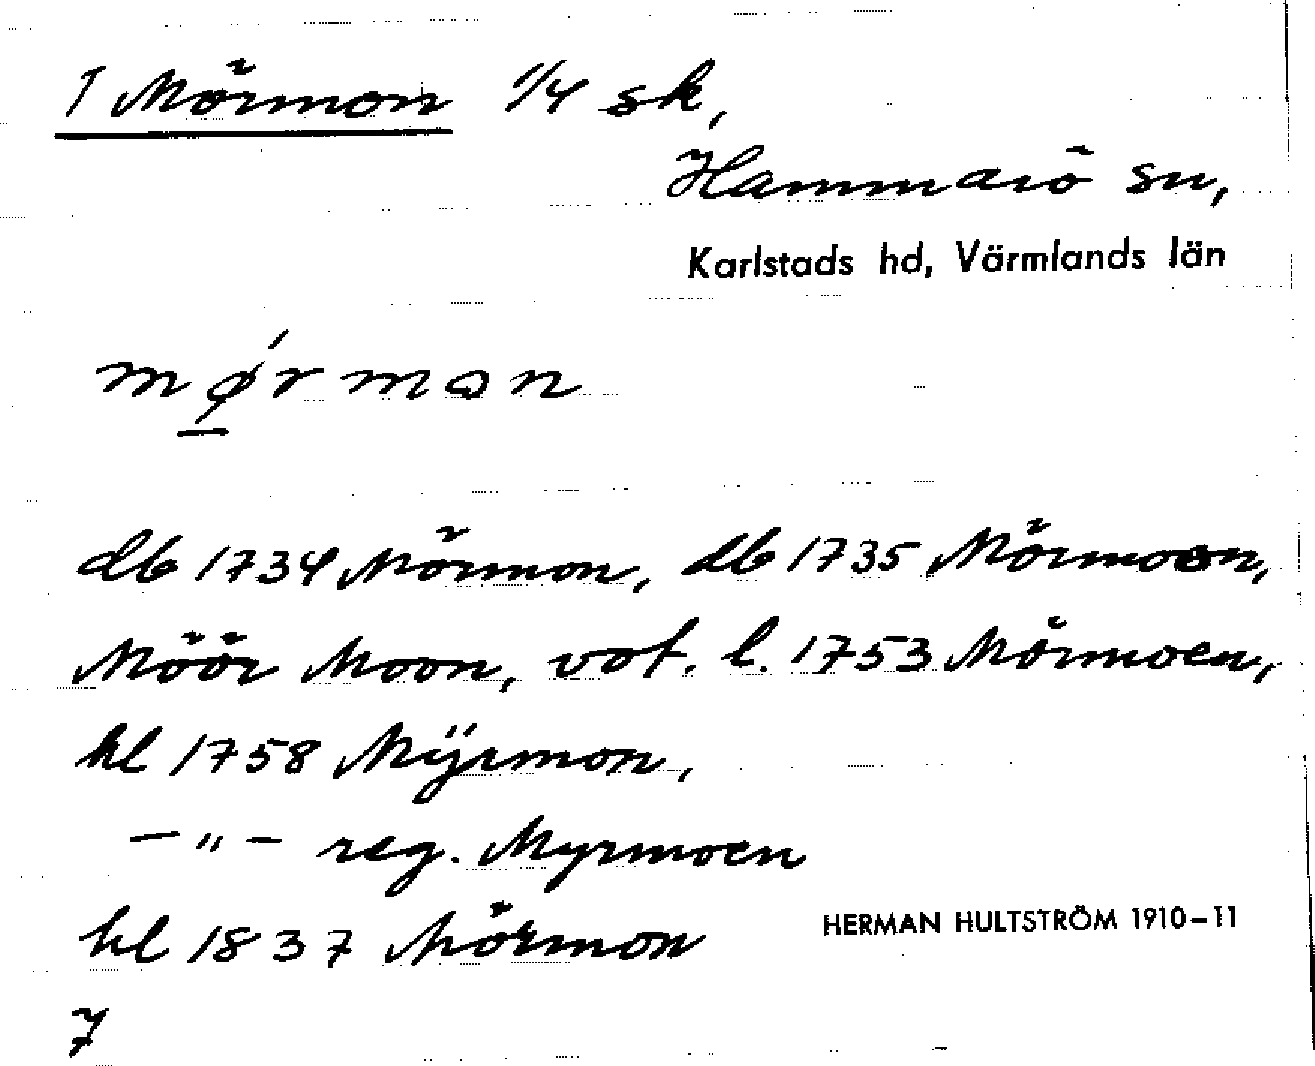 1 Mörmon 1/4 sk,
Hammarö sn,
Karlstads hd, Värmlands län
mǿrmon
db 1734 Mörmon, db 1735 Mörmoen,
Möör Moon, vot. l. 1753 Mörmoen,
kl 1758 Mÿrmon,
—"— reg. Myrmoen
kl 1837 Mörmon
HERMAN HULTSTRÖM 1910–11
7